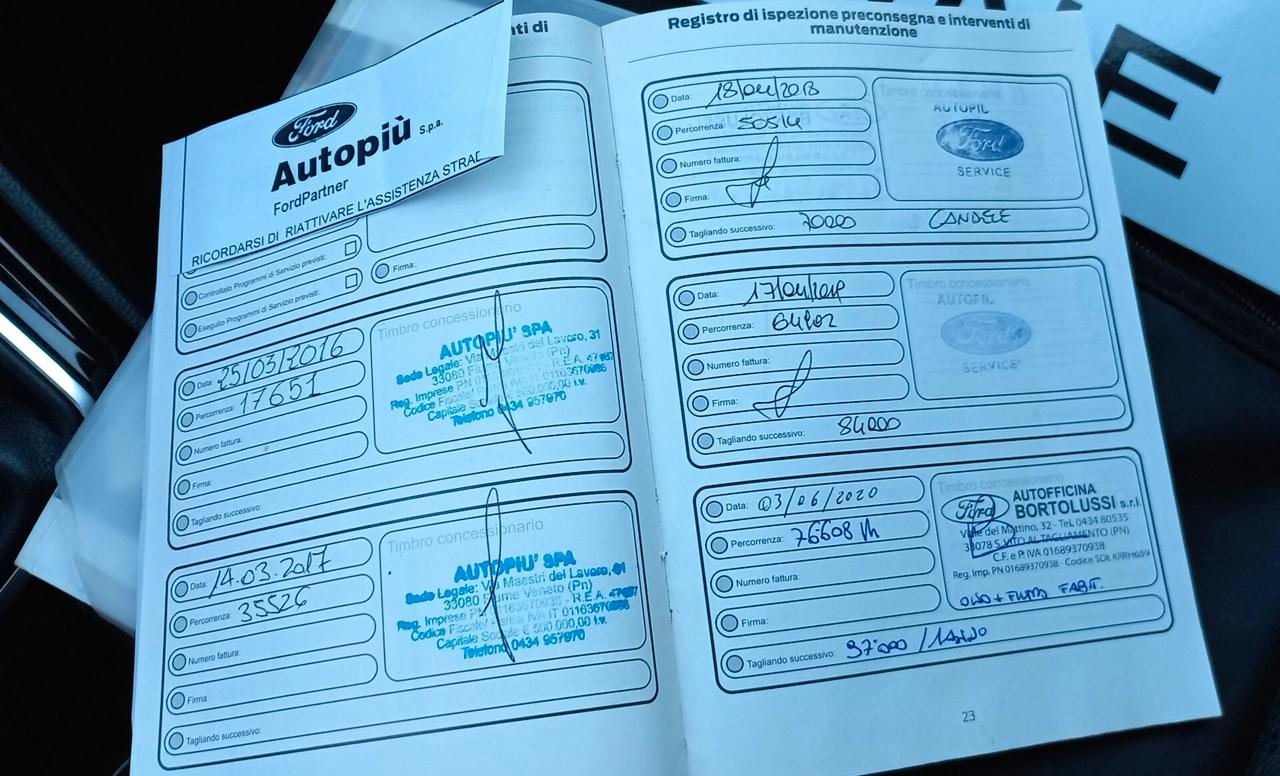 nti di
Ford
Autopiù S.p.a.
FordPartner
RICORDARSI DI RIATTIVARE L'ASSISTENZA STRAD
Controllato Programmi di Servizio previsti:
Eseguito Programmi di Servizio previsti:
Firma:
Data: 25/03/2016
Percorrenza: 17651
Numero fattura:
Firma:
Tagliando successivo:
Timbro concessionario
AUTOPIU' SPA
Sede Legale: Via Maestri del Lavoro, 31
33080 Fiume Veneto (Pn)
Reg. Imprese PN R.E.A.
Codice Fiscale/ IT 01163670935
Capitale Sociale 500.000,00 i.v.
Telefono 0434 957970
Data: 14.03.2017
Percorrenza: 35526
Numero fattura:
Firma:
Tagliando successivo:
Timbro concessionario
AUTOPIU' SPA
Sede Legale: Via Maestri del Lavoro, 31
33080 Fiume Veneto (Pn)
Reg. Imprese PN 01163670935 - R.E.A.
Codice Fiscale/ Partita IVA IT 01163670935
Capitale Sociale € 500.000,00 i.v.
Telefono 0434 957970
Registro di ispezione preconsegna e interventi di
manutenzione
Data:
Percorrenza: 50514
Numero fattura:
Firma:
Tagliando successivo: 7000 CANDELE
Timbro concessionario
AUTOPIL
Ford
SERVICE
Data:
Percorrenza:
Numero fattura:
Firma:
Tagliando successivo: 84000
Timbro concessionario
AUTOPIL
Ford
SERVICE
Data: 03/06/2020
Percorrenza: 76608
Numero fattura:
Firma:
Tagliando successivo: 97'000 / 1 ANNO
Timbro concessionario
Ford
AUTOFFICINA
BORTOLUSSI s.r.l.
Viale del Mattino, 32 - Tel. 0434 80535
33078 S.VITO AL TAGLIAMENTO (PN)
C.F. e P. IVA 01689370938
Reg. Imp. PN 01689370938 - Codice SDI: KRRH6B9
OLIO + FILTRO
23